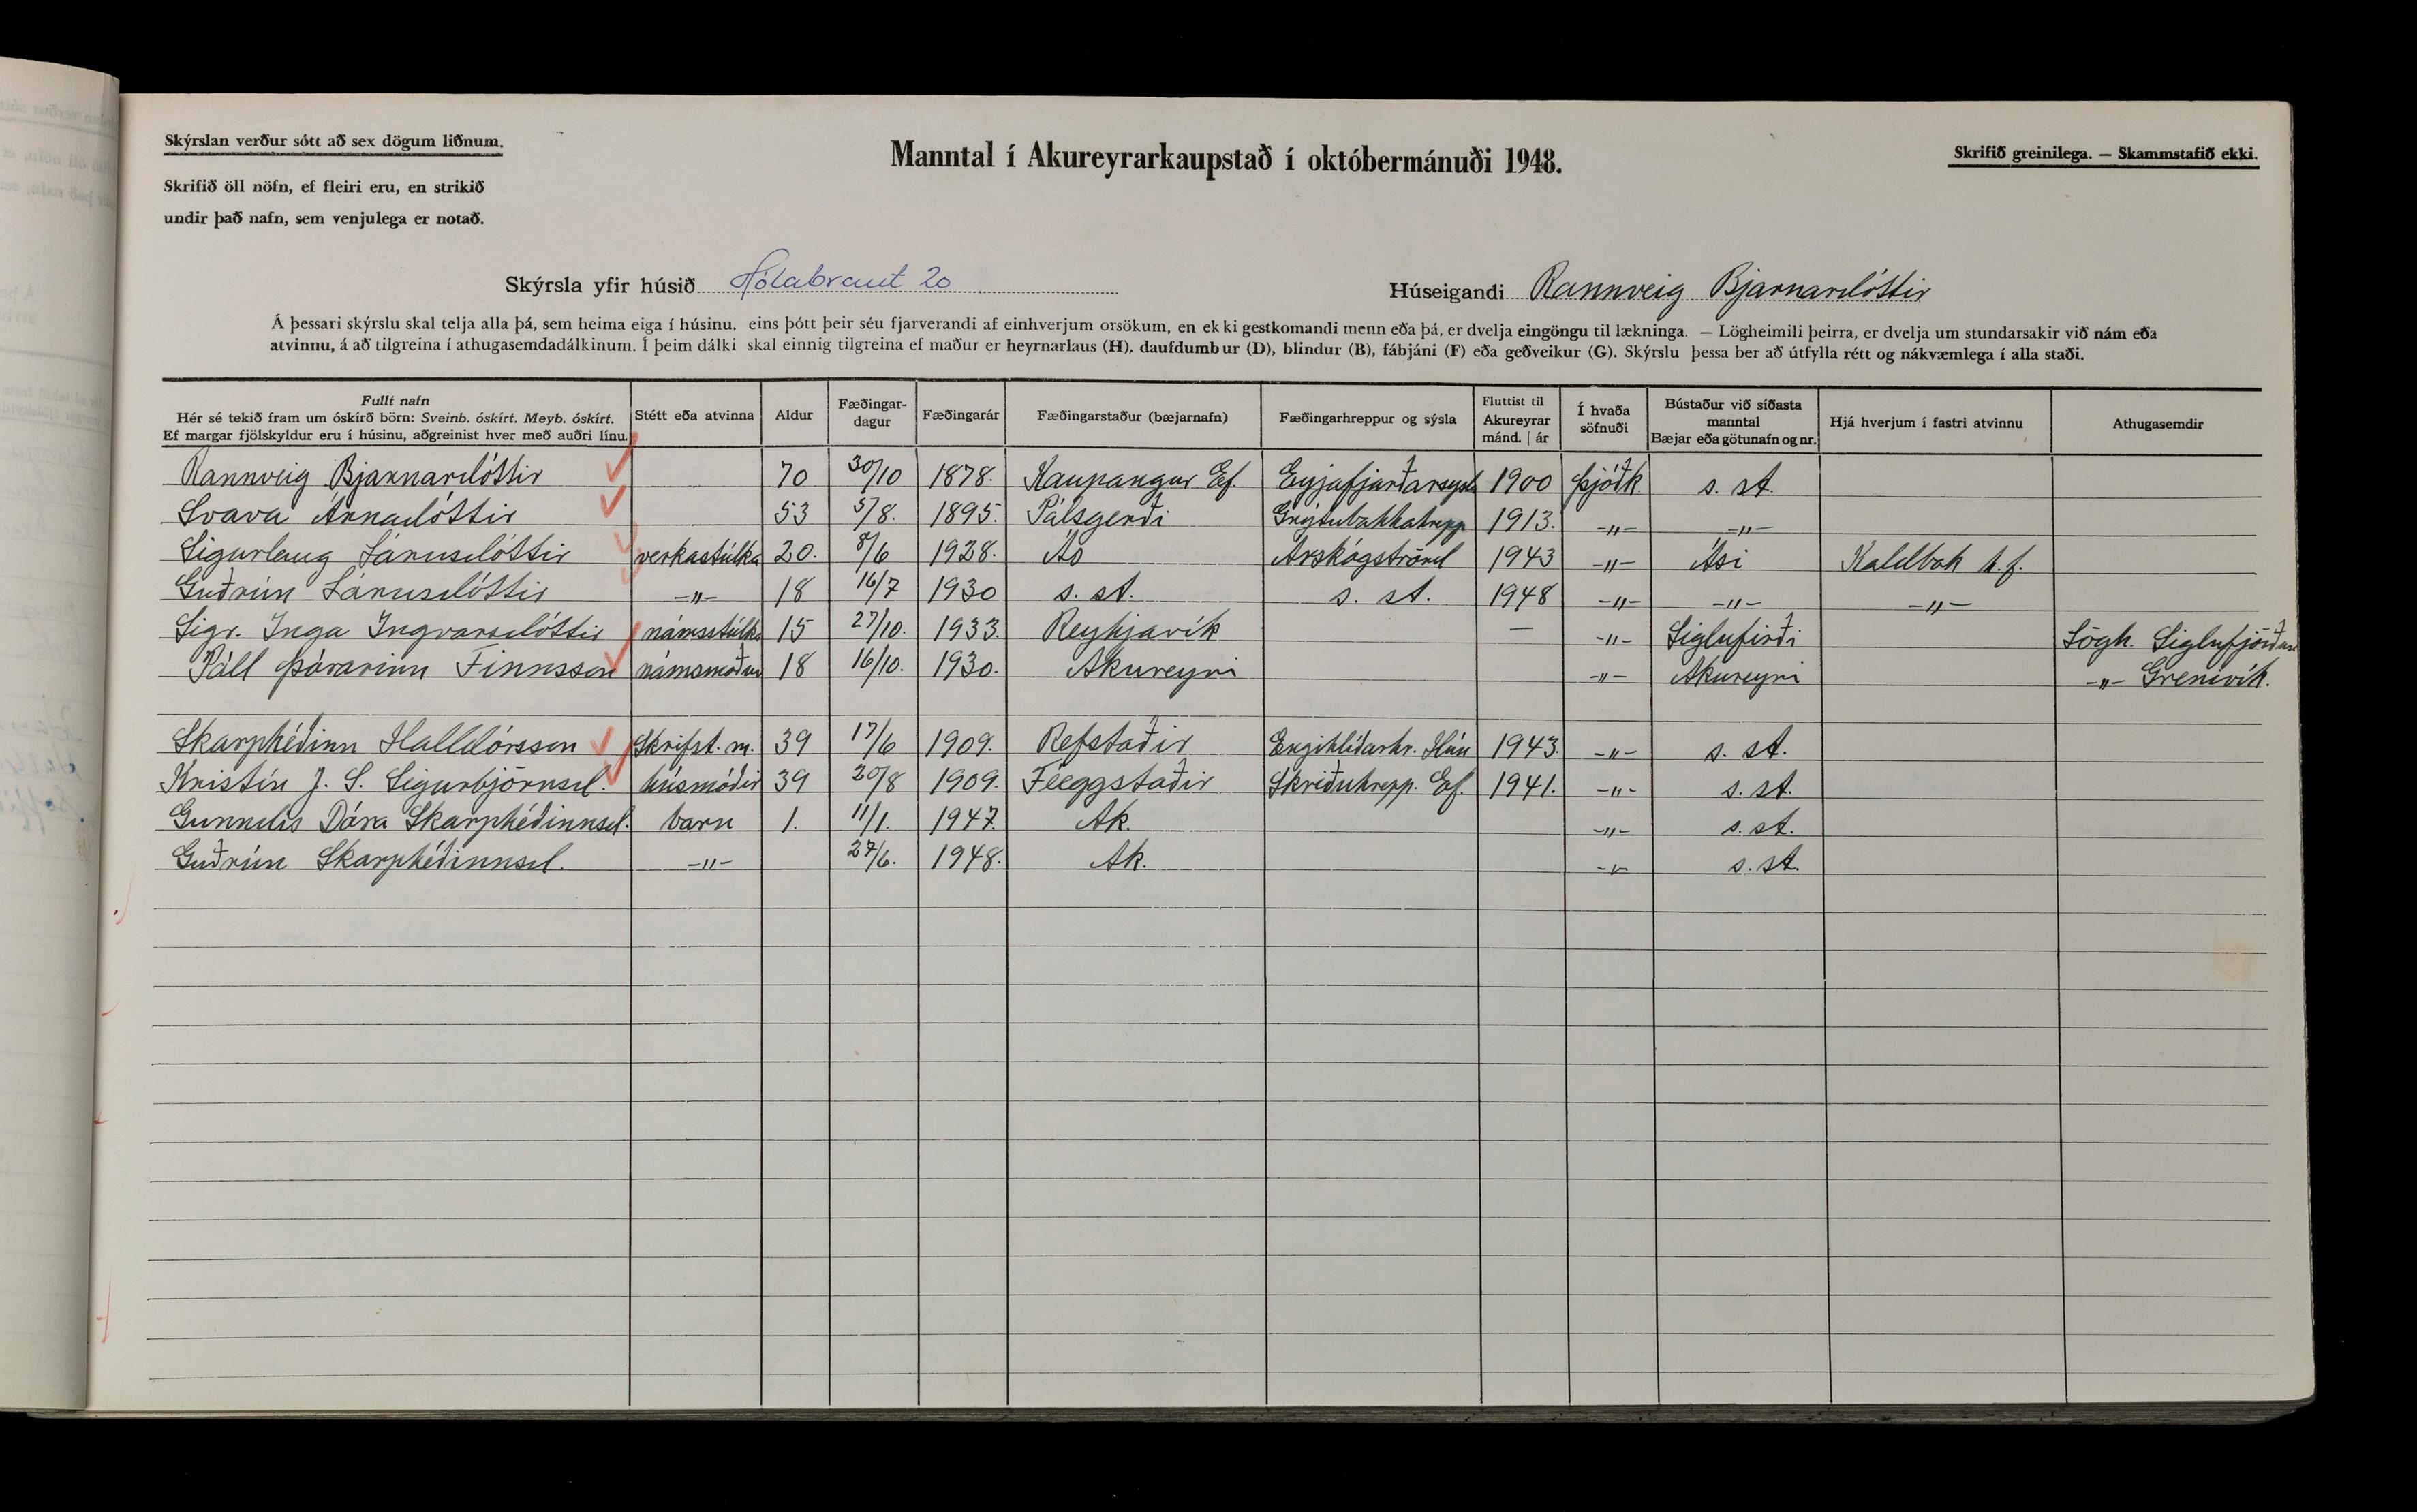 Skýrslan verður sótt að sex dögum liðnum.
Skrifið öll nöfn, ef fleiri eru, en strikið
undir það nafn, sem venjulega er notað.
Manntal í Akureyrarkaupstað í októbermánuði 1948.
Skrifið greinilega. — Skammstafið ekki.
Skýrsla yfir húsið Hólabraut 20
Húseigandi Rannveig Bjarnardóttir
Á þessari skýrslu skal telja alla þá, sem heima eiga í húsinu, eins þótt þeir séu fjarverandi af einhverjum orsökum, en ekki gestkomandi menn eða þá, er dvelja eingöngu til lækninga. — Lögheimili þeirra, er dvelja um stundarsakir við nám eða
atvinnu, á að tilgreina í athugasemdadálkinum. Í þeim dálki skal einnig tilgreina ef maður er heyrnarlaus (H), daufdumbur (D), blindur (B), fábjáni (F) eða geðveikur (G). Skýrslu þessa ber að útfylla rétt og nákvæmlega í alla staði.
Fullt nafn
Hér sé tekið fram um óskírð börn: Sveinb. óskírt. Meyb. óskírt.
Ef margar fjölskyldur eru í húsinu, aðgreinist hver með auðri línu.
Stétt eða atvinna
Aldur
Fæðingar-
dagur
Fæðingarár
Fæðingarstaður (bæjarnafn)
Fæðingarhreppur og sýsla
Fluttist til
Akureyrar
mánd. | ár
Í hvaða
söfnuði
Bústaður við síðasta
manntal
Bæjar eða götunafn og nr.
Hjá hverjum í fastri atvinnu
Athugasemdir
Rannveig Bjarnardóttir 70 30/10 1878. Kaupangur Ef. Eyjafjarðarsýsla 1900 Þjóðk. s. st.
Svava Árnadóttir 53 5/8. 1895. Pálsgerði Grýtubakkahrepp 1913. -"- -"-
Sigurlaug Lárusdóttir verkastúlka 20. 8/6 1928. Ás Árskógströnd 1943 -"- Ási Kaldbak h.f.
Guðrún Lárusdóttir -"- 18 16/7 1930 s. st. s. st. 1948 -"- -"- -"-
Sigr. Inga Ingvarsdóttir námsstúlka 15 27/10. 1933. Reykjavík — -"- Siglufirði Lögh. Siglufjörður
Páll Þórarinn Finnsson námsmaður 18 16/10. 1930. Akureyri -"- Akureyri -"- Grenivík.
Skarphéðinn Halldórsson Skrifst. m. 39 17/6 1909. Refstaðir Engihlíðarhr. Hún 1943. -"- s. st.
Kristín J. S. Sigurbjörnsd. húsmóðir 39 20/8 1909. Féeggstaðir Skriðuhrepp. Ef. 1941. -"- s. st.
Gunndís Dóra Skarphéðinnsd. barn 1. 11/1. 1947. Ak. -"- s. st.
Guðrún Skarphéðinnsd. -"- 27/6. 1948. Ak. -"- s. st.